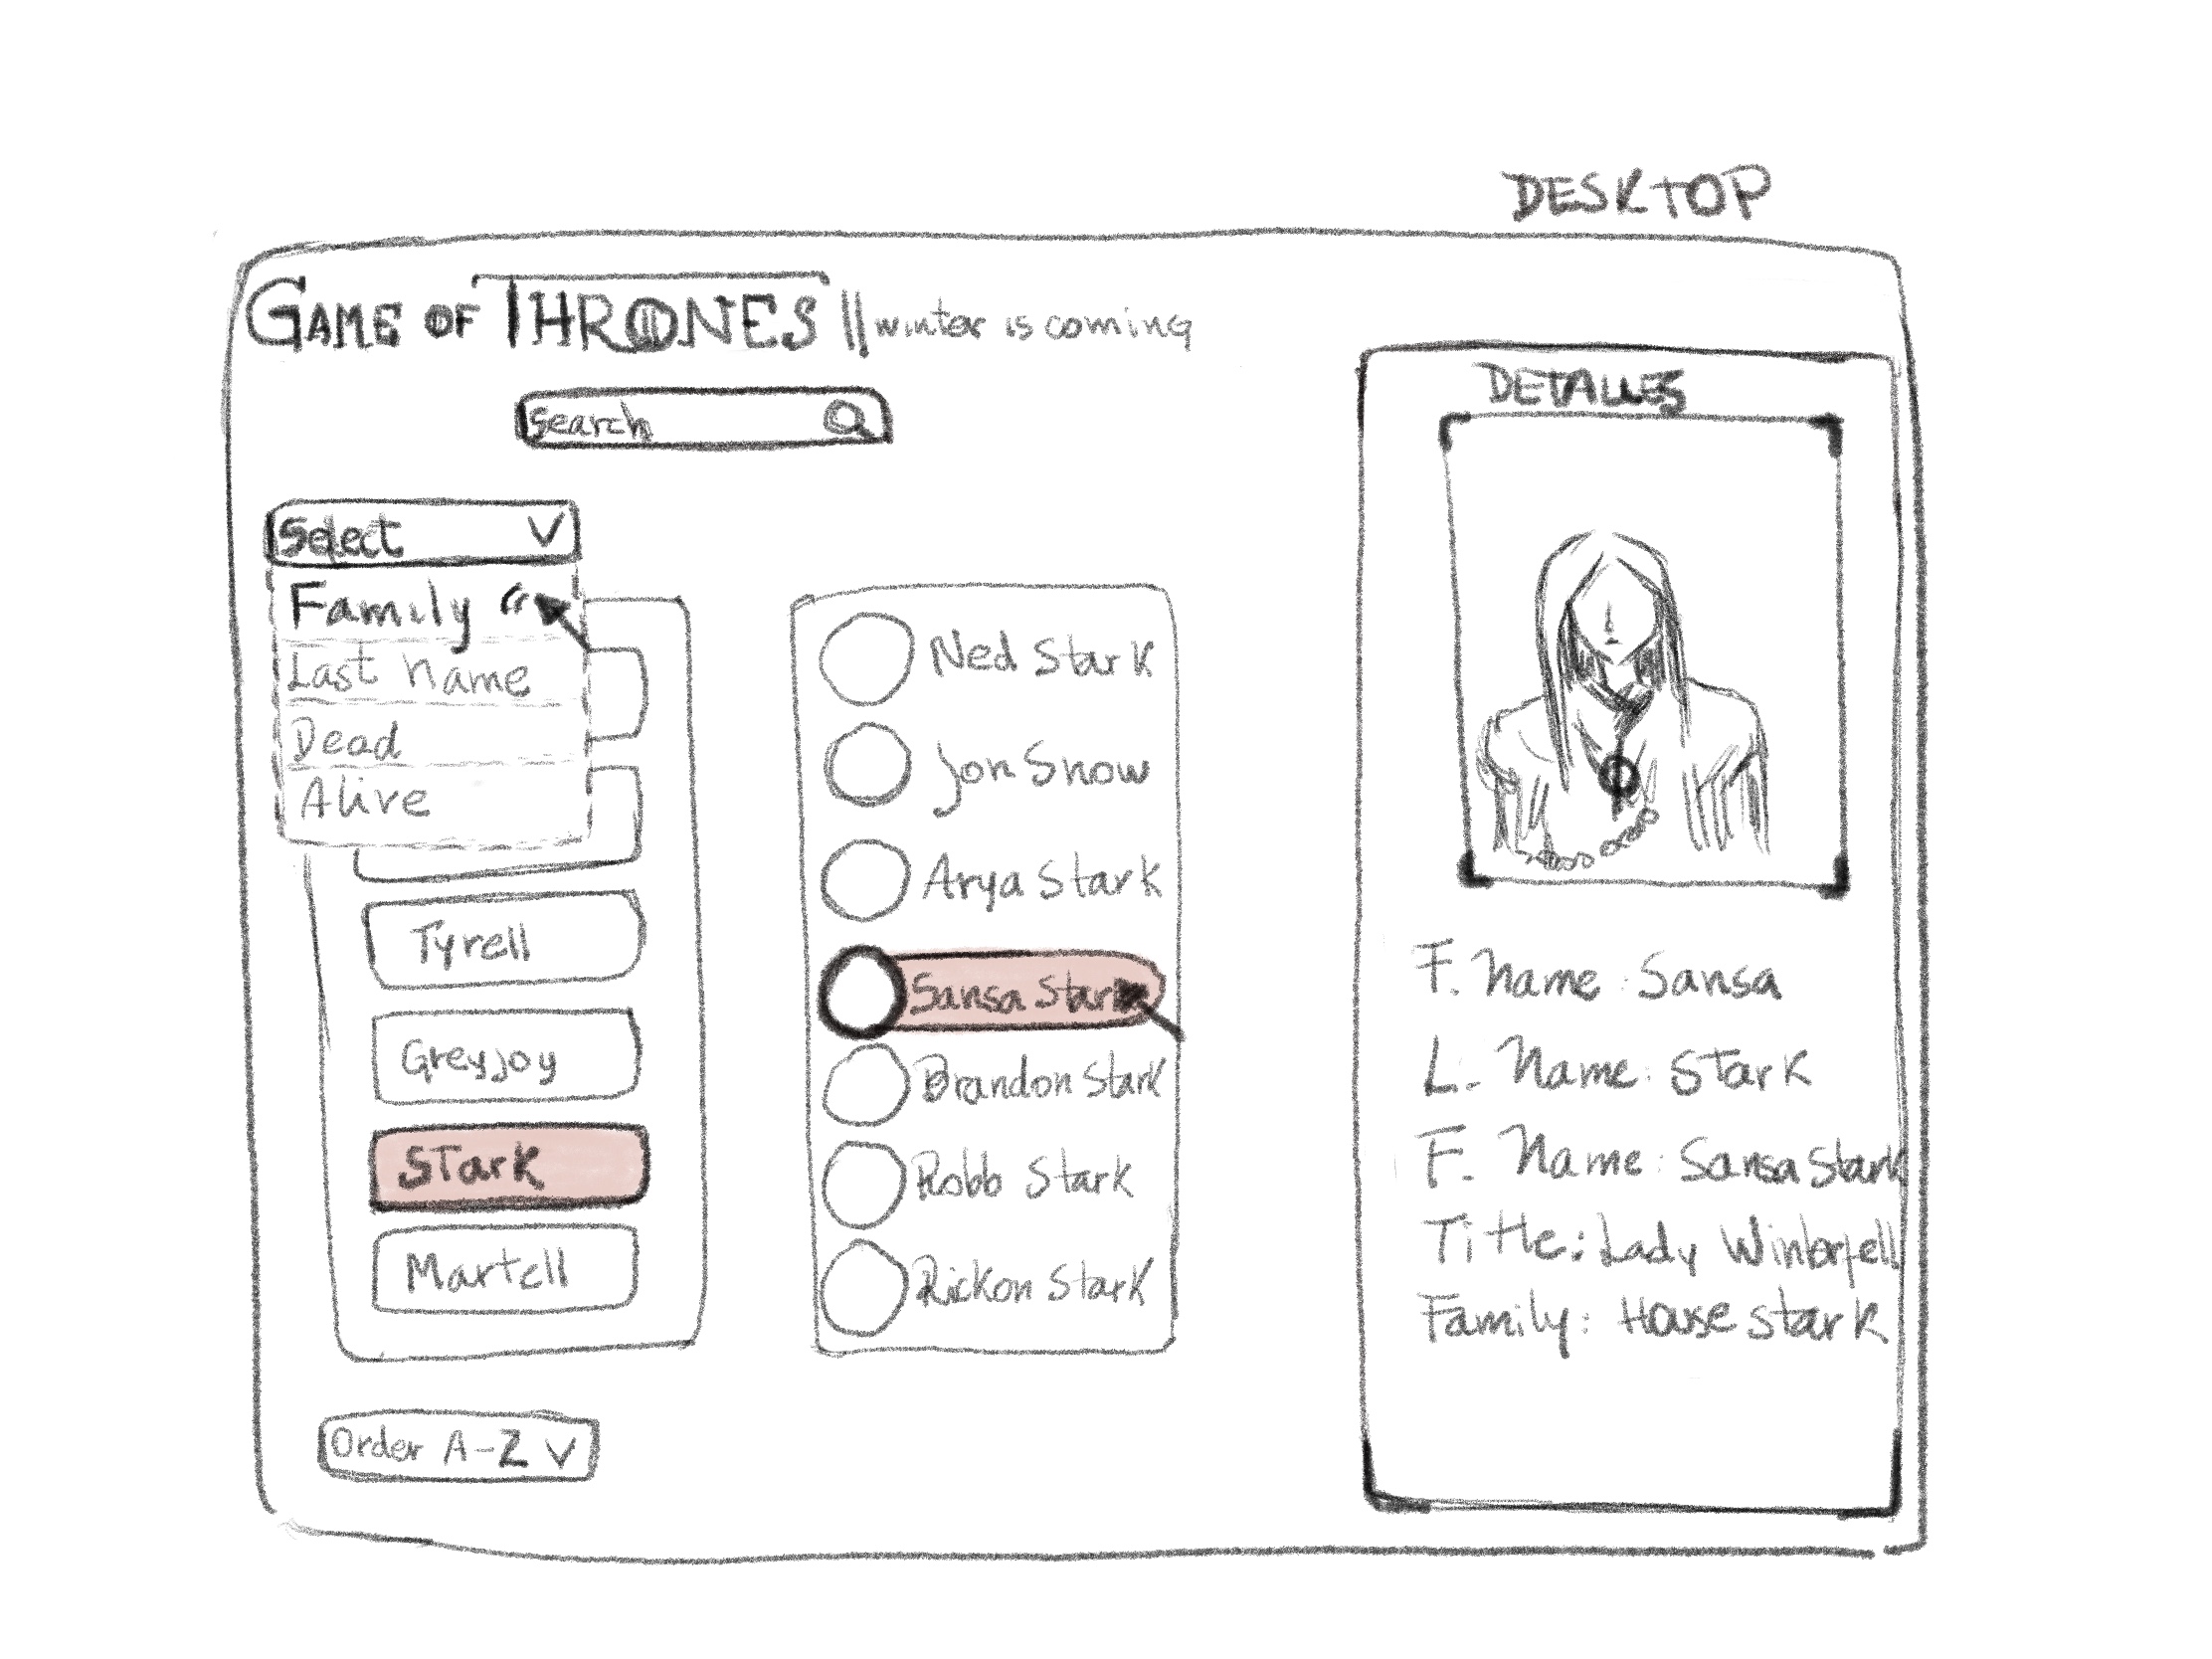 DESKTOP
GAME OF THRONES || winter is coming
Search
Select V
Family
Last name
Dead
Alive
Tyrell
Greyjoy
Stark
Martell
Order A-Z V
Ned Stark
Jon Snow
Arya Stark
Sansa Stark
Brandon Stark
Robb Stark
Rickon Stark
DETALLES
F. Name: Sansa
L. Name: Stark
F. Name: Sansa Stark
Title: Lady Winterfell
Family: House Stark